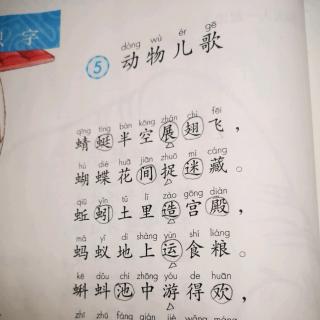 识字
dòng wù ér gē
5 动物儿歌
qīng tíng bàn kōng zhǎn chì fēi
蜻蜓半空展翅飞，
hú dié huā jiān zhuō mí cáng
蝴蝶花间捉迷藏。
qiū yǐn tǔ lǐ zào gōng diàn
蚯蚓土里造宫殿，
mǎ yǐ dì shàng yùn shí liáng
蚂蚁地上运食粮。
kē dǒu chí zhōng yóu de huān
蝌蚪池中游得欢，
zhī zhū fáng qián wǎng máng